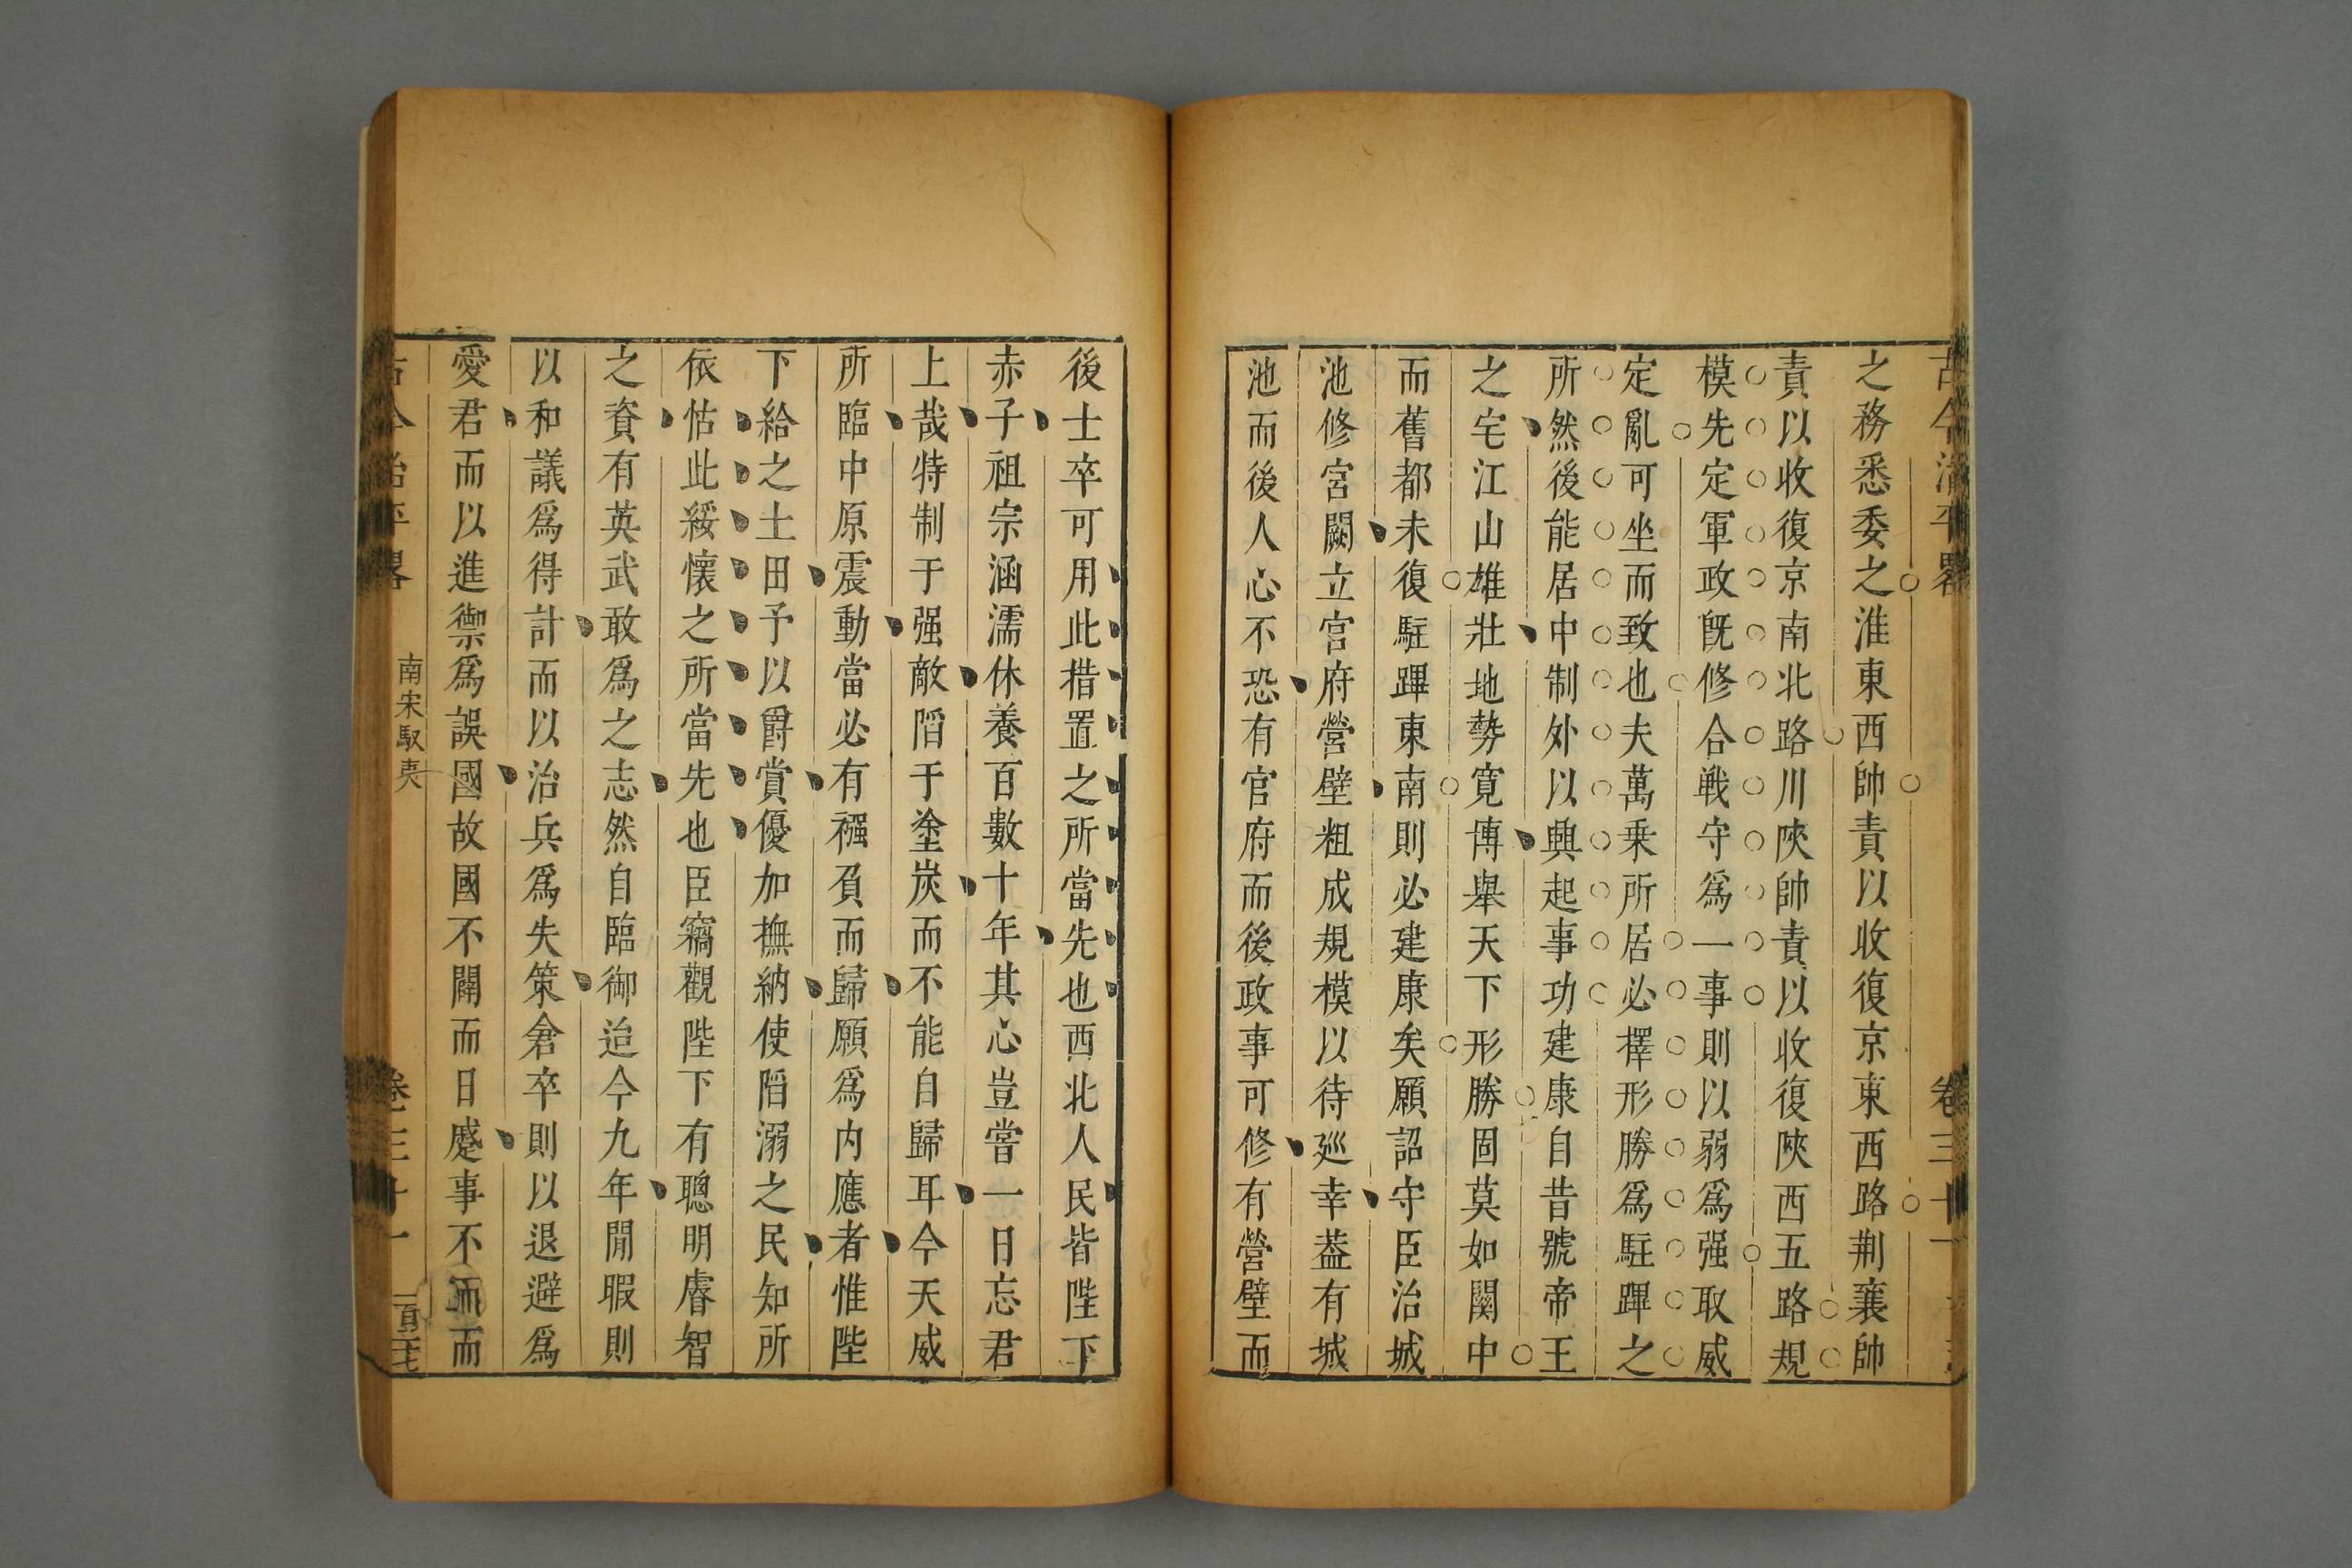 古今治平畧 卷三十一
之務悉委之淮東西帥責以收復京東西路荆襄帥
責以收復京南北路川陜帥責以收復陜西五路規
模先定軍政旣修合戰守爲一事則以弱爲强取威
定亂可坐而致也夫萬乗所居必擇形勝爲駐蹕之
所然後能居中制外以興起事功建康自昔號帝王
之宅江山雄壯地勢寛博舉天下形勝固莫如関中
而舊都未復駐蹕東南則必建康矣願詔守臣治城
池修宮闕立官府營壁粗成規模以待廵幸葢有城
池而後人心不恐有官府而後政事可修有營壁而
後士卒可用此措置之所當先也西北人民皆陛下
赤子祖宗涵濡休養百數十年其心豈嘗一日忘君
上哉特制于强敵陷于塗炭而不能自歸耳今天威
所臨中原震動當必有襁負而歸願爲内應者惟陛
下給之土田予以爵賞優加撫納使陷溺之民知所
依怙此綏懷之所當先也臣竊觀陛下有聰明睿智
之資有英武敢爲之志然自臨御迨今九年閒暇則
以和議爲得計而以治兵爲失策倉卒則以退避爲
愛君而以進禦爲誤國故國不闢而日蹙事不而
古今治平畧 南宋馭夷 卷三十一